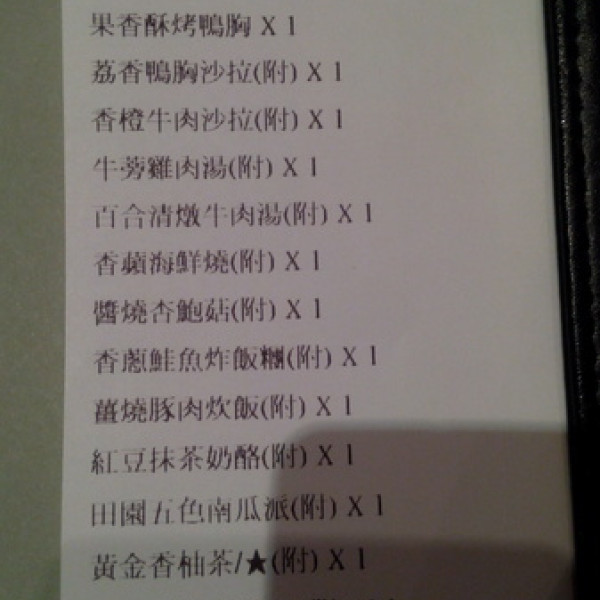 果香酥烤鴨胸 X 1
荔香鴨胸沙拉(附) X 1
香橙牛肉沙拉(附) X 1
牛蒡雞肉湯(附) X 1
百合清燉牛肉湯(附) X 1
香蘋海鮮燒(附) X 1
醬燒杏鮑菇(附) X 1
香蔥鮭魚炸飯糰(附) X 1
薑燒豚肉炊飯(附) X 1
紅豆抹茶奶酪(附) X 1
田園五色南瓜派(附) X 1
黃金香柚茶/★(附) X 1